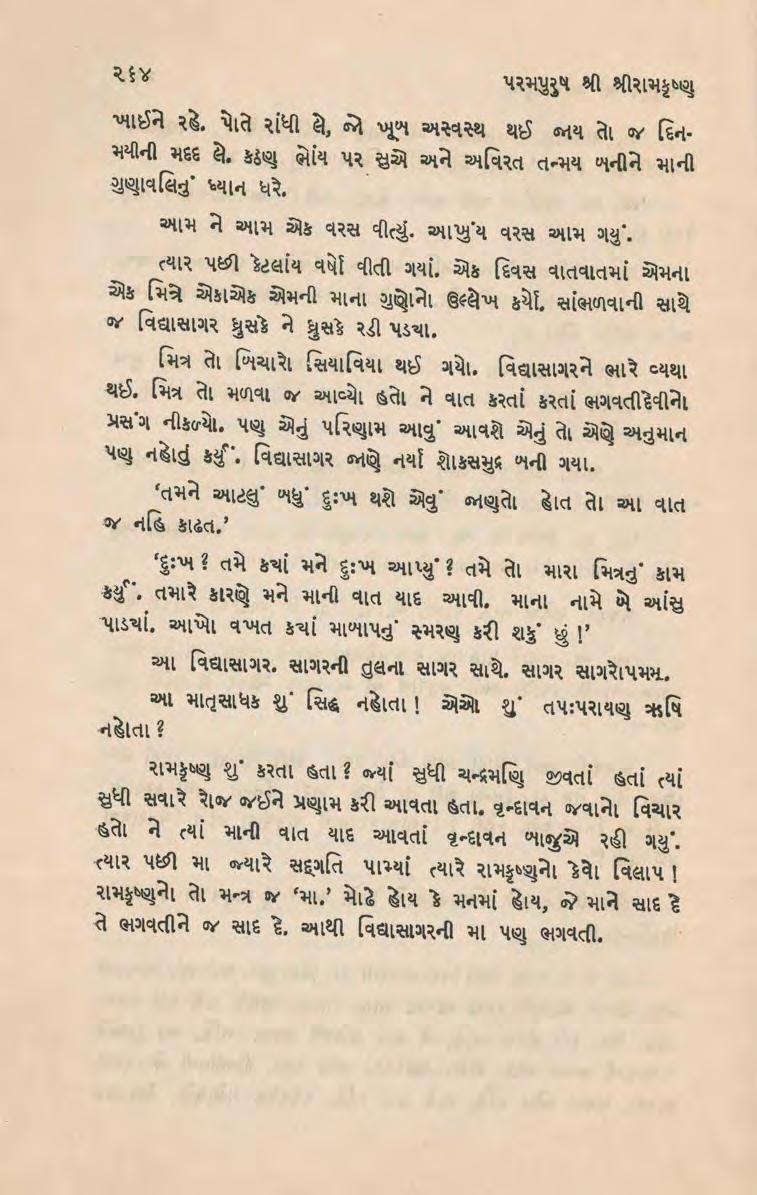 ૨૬૪
પરમપુરુષ શ્રી શ્રીરામકૃષ્ણ
ખાઈને રહે. પોતે રાંધી લે, જો ખૂબ અસ્વસ્થ થઈ જાય તો જ દિન-
મયીની મદદ લે. કઠણ ભોંય પર સુએ અને અવિરત તન્મય બનીને માની
ગુણાવલિનું ધ્યાન ધરે.
આમ ને આમ એક વરસ વીત્યું. આખુંય વરસ આમ ગયું.
ત્યાર પછી કેટલાંય વર્ષો વીતી ગયાં. એક દિવસ વાતવાતમાં એમના
એક મિત્રે એકાએક એમની માના ગુણોનો ઉલ્લેખ કર્યો. સાંભળવાની સાથે
જ વિદ્યાસાગર ધ્રુસકે ને ધ્રુસકે રડી પડ્યા.
મિત્ર તો બિચારો સિયાવિયા થઈ ગયો. વિદ્યાસાગરને ભારે વ્યથા
થઈ. મિત્ર તો મળવા જ આવ્યો હતો ને વાત કરતાં કરતાં ભગવતીદેવીનો
પ્રસંગ નીકળ્યો. પણ એનું પરિણામ આવું આવશે એનું તો એણે અનુમાન
પણ નહોતું કર્યું. વિદ્યાસાગર જાણે નર્યા શોકસમુદ્ર બની ગયા.
‘તમને આટલું બધું દુઃખ થશે એવું જાણતો હોત તો આ વાત
જ નહિ કાઢત.’
‘દુઃખ ? તમે કયાં મને દુઃખ આપ્યું ? તમે તો મારા મિત્રનું કામ
કર્યું. તમારે કારણે મને માની વાત યાદ આવી. માના નામે બે આંસુ
પાડ્યાં. આખો વખત કયાં માબાપનું સ્મરણ કરી શકું છું !’
આ વિદ્યાસાગર. સાગરની તુલના સાગર સાથે. સાગર સાગરોપમમ્.
આ માતૃસાધક શું સિદ્ધ નહોતા ! એઓ શું તપઃપરાયણ ઋષિ
નહોતા ?
રામકૃષ્ણ શું કરતા હતા ? જ્યાં સુધી ચન્દ્રમણિ જીવતાં હતાં ત્યાં
સુધી સવારે રોજ જઈને પ્રણામ કરી આવતા હતા. વૃન્દાવન જવાનો વિચાર
હતો ને ત્યાં માની વાત યાદ આવતાં વૃન્દાવન બાજુએ રહી ગયું.
ત્યાર પછી મા જ્યારે સદ્દગતિ પામ્યાં ત્યારે રામકૃષ્ણનો કેવો વિલાપ !
રામકૃષ્ણનો તો મન્ત્ર જ ‘મા.’ મોઢે હોય કે મનમાં હોય, જે માને સાદ દે
તે ભગવતીને જ સાદ દે. આથી વિદ્યાસાગરની મા પણ ભગવતી.